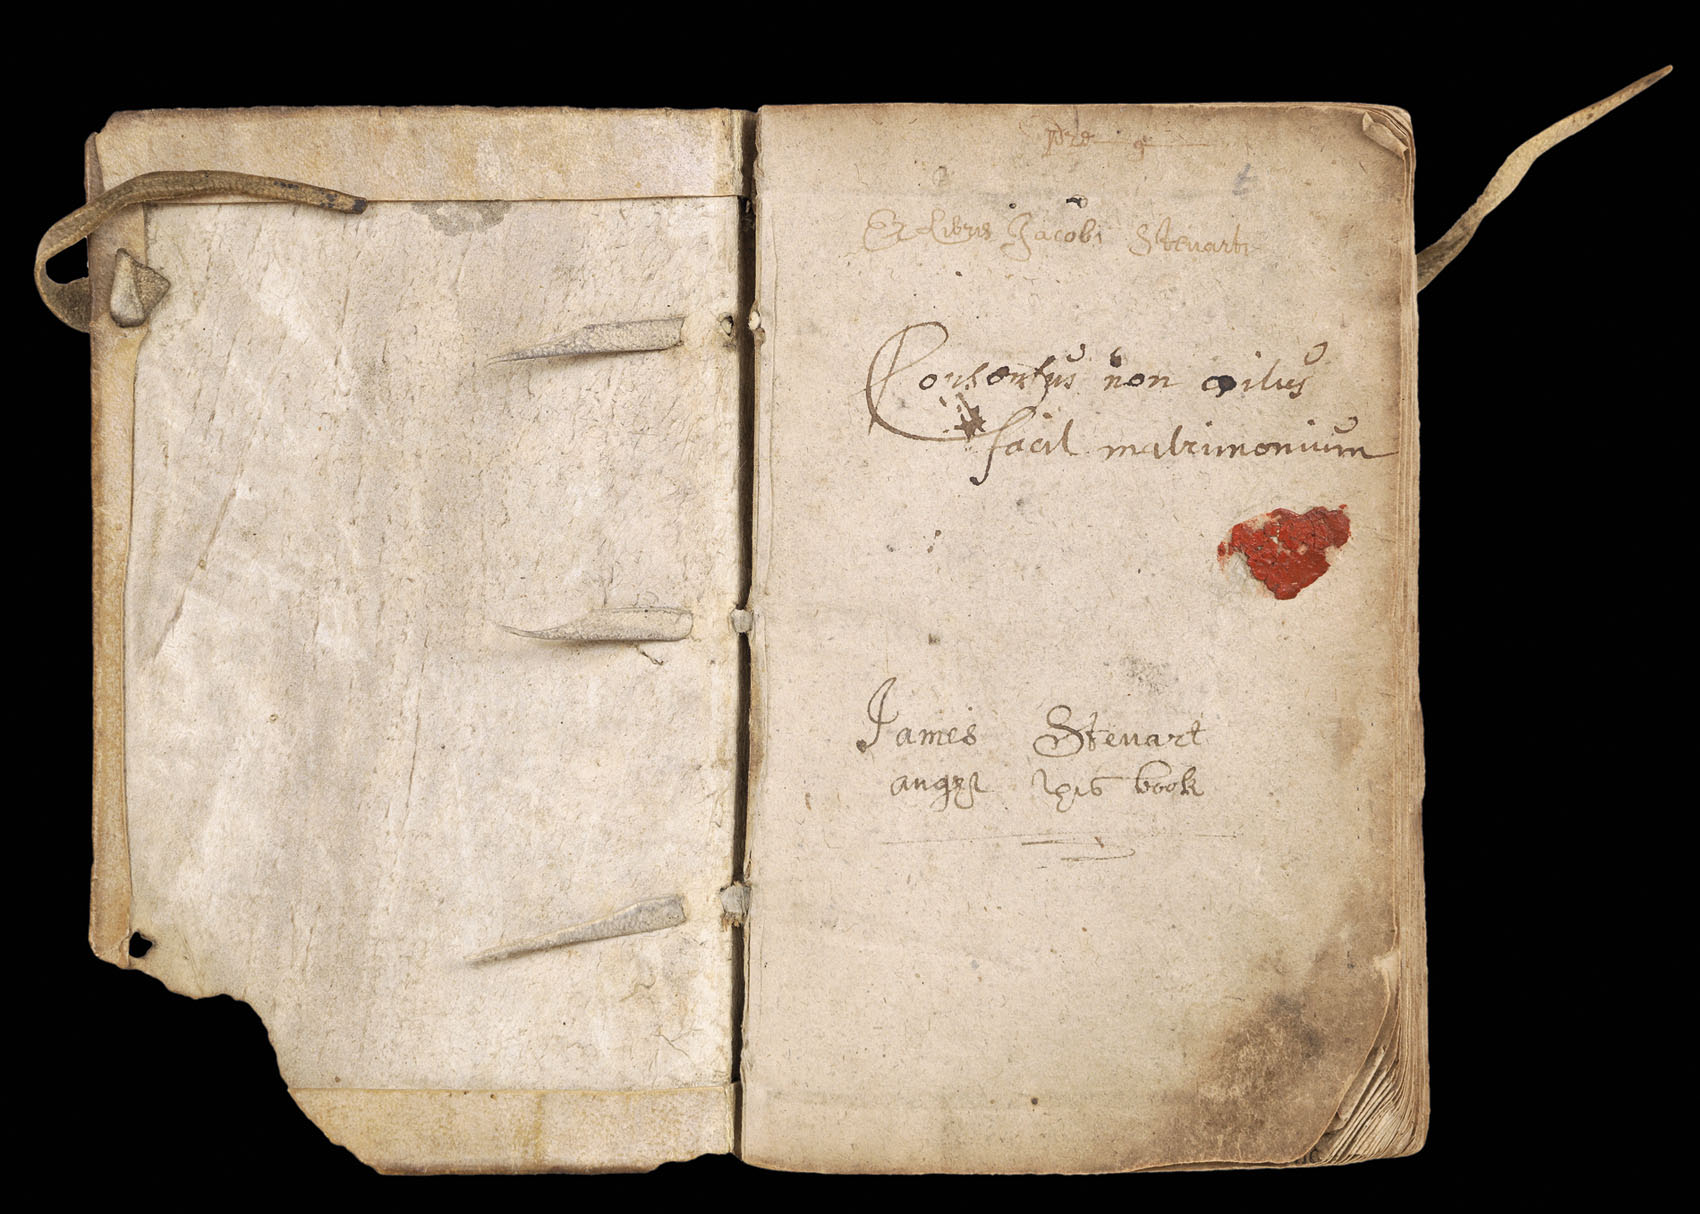 pre
Ex Libris Jacobi Steuarti
Consensus non coitus
facit matrimonium
James Steuart
aught this book